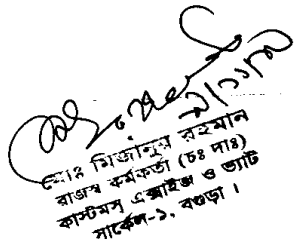 মোঃ মিজানুর রহমান
রাজস্ব কর্মকর্তা (চঃ দাঃ)
কাস্টমস্ এক্সাইজ ও ভ্যাট
সার্কেল-১, বগুড়া ।